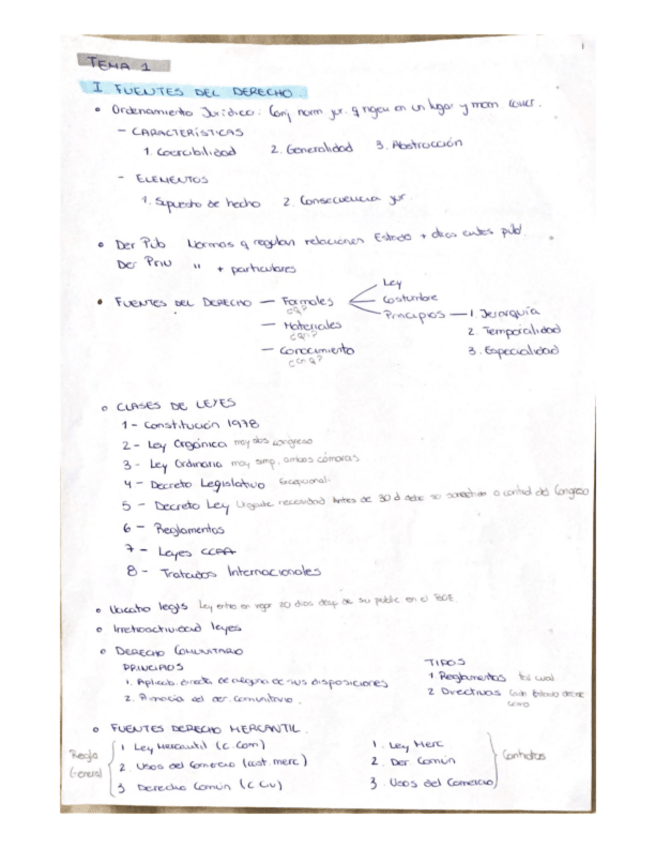 1
TEMA 1
I FUENTES DEL DERECHO.
• Ordenamiento Jurídico: Conj norm jur. q rigen en un lugar y mom concr.
– CARACTERÍSTICAS
1. Coercibilidad 2. Generalidad 3. Abstracción
– ELEMENTOS
1. Supuesto de hecho 2. Consecuencia jur.
• Der Pub Normas q regulan relaciones Estado + otros entes púb.
Der Priv " + particulares
• FUENTES DEL DERECHO – Formales – Ley
Costumbre
Principios – 1. Jerarquía
– Materiales 2. Temporalidad
– Conocimiento 3. Especialidad
• CLASES DE LEYES
1 – Constitución 1978
2 – Ley Orgánica may abs congreso
3 – Ley Ordinaria may simp, ambas cámaras
4 – Decreto Legislativo Excepcional.
5 – Decreto Ley Urgente necesidad Antes de 30 d debe ser sometido a control del Congreso
6 – Reglamentos
7 – Leyes CCAA
8 – Tratados Internacionales
• Vacatio legis Ley entra en vigor 20 dias desp de su public en el BOE.
• Irretroactividad leyes
• DERECHO COMUNITARIO
PRINCIPIOS
1. Aplicab. directa de de sus disposiciones
2. Primacía del der. comunitario.
TIPOS
1 Reglamentos tal cual
2 Directivas Cada Estado
• FUENTES DERECHO MERCANTIL.
Regla General
1 Ley Mercantil (C. Com)
2 Usos del Comercio (cost. merc)
3 Derecho Común (C Civ)
1. Ley Merc
2. Der Común
3. Usos del Comercio
Contratos